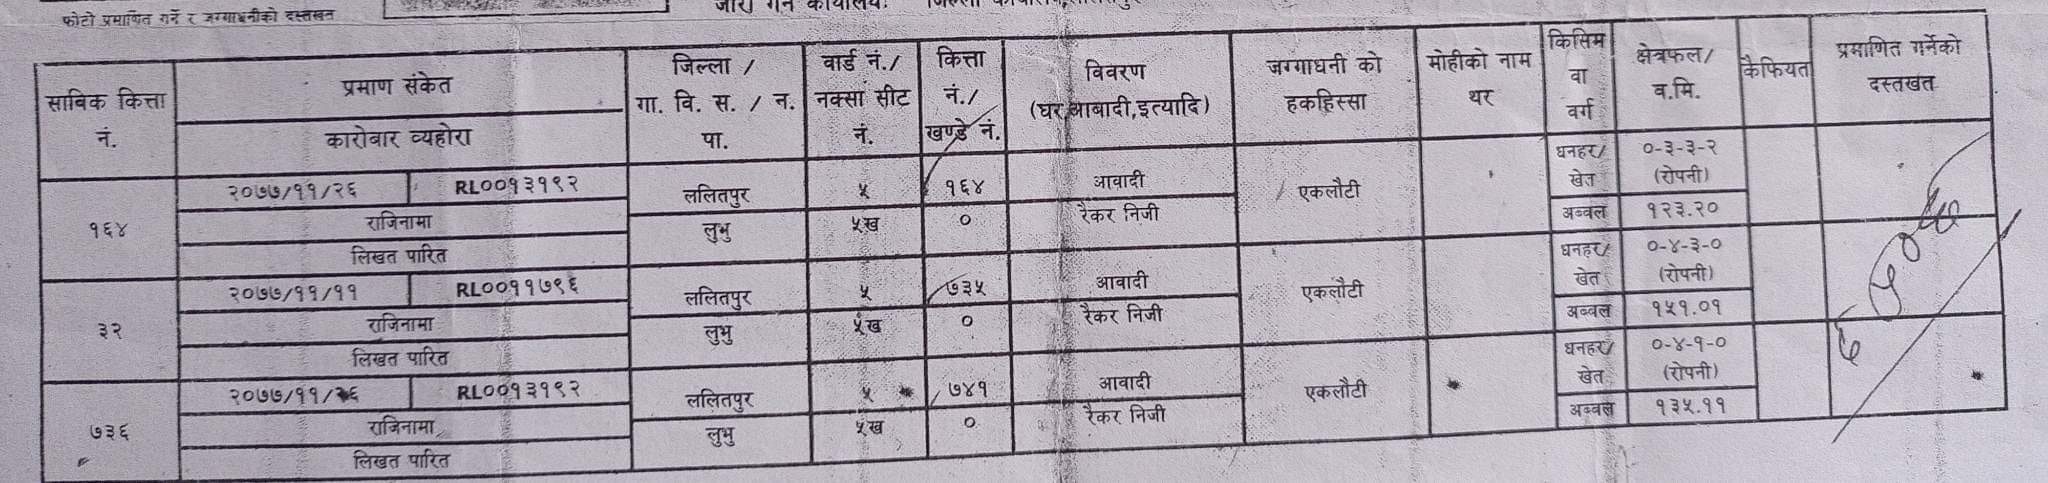 फोटो प्रमाणित गर्ने र जग्गाधनीको दस्तखत
जारी गर्ने कार्यालयः
साविक कित्ता नं.
प्रमाण संकेत
कारोबार व्यहोरा
जिल्ला / गा. वि. स. / न. पा.
वार्ड नं./ नक्सा सीट नं.
कित्ता नं./ खण्डे नं.
विवरण (घर,आबादी,इत्यादि)
जग्गाधनी को हकहिस्सा
मोहीको नाम थर
किसिम वा वर्ग
क्षेत्रफल/ व.मि.
कैफियत
प्रमाणित गर्नेको दस्तखत
१६४
२०७७/११/२६ RL००१३१९२
राजिनामा
लिखत पारित
ललितपुर ५ १६४ आवादी
लुभु ५ख ० रैकर निजी
एकलौटी
धनहर/ खेत ०-३-३-२ (रोपनी)
अब्बल १२३.२०
३२
२०७७/११/११ RL००११७९६
राजिनामा
लिखत पारित
ललितपुर ५ ७३५ आवादी
लुभु ५ख ० रैकर निजी
एकलौटी
धनहर/ खेत ०-४-३-० (रोपनी)
अब्बल १५१.०१
७३६
२०७७/११/२६ RL००१३१९२
राजिनामा
लिखत पारित
ललितपुर ५ ७४१ आवादी
लुभु ५ख ० रैकर निजी
एकलौटी
धनहर/ खेत ०-४-१-० (रोपनी)
अब्बल १३५.११